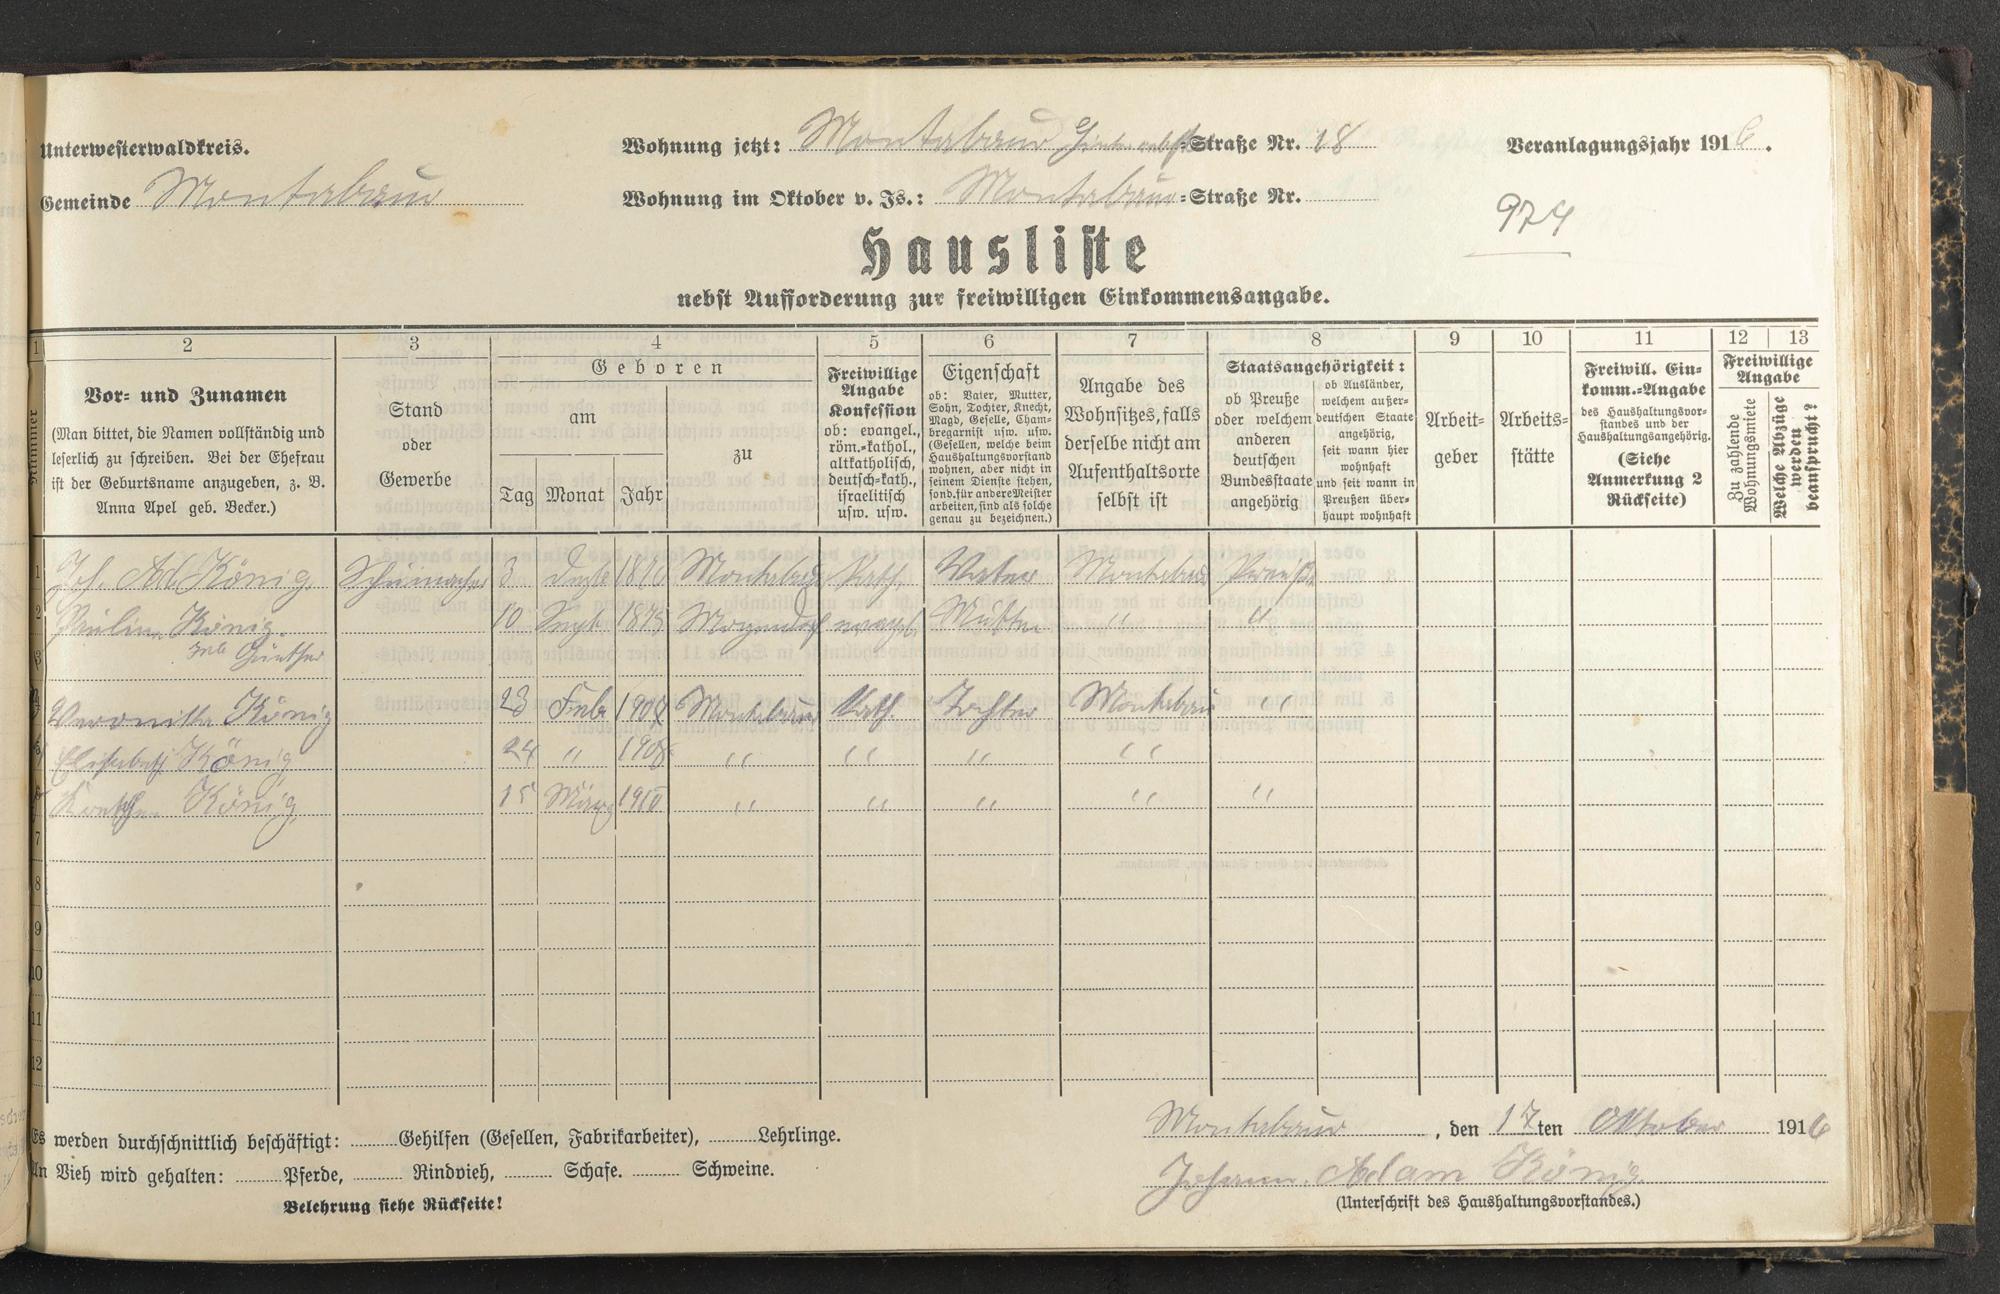 Unterwesterwaldkreis.
Gemeinde Montabaur
Wohnung jetzt: Montabaur =Straße Nr. 18
Veranlagungsjahr 1916.
Wohnung im Oktober v. Js.: Montabaur =Straße Nr.
974
Hausliste
nebst Aufforderung zur freiwilligen Einkommensangabe.
1 2 3 4 5 6 7 8 9 10 11 12 13
Nummer
Vor= und Zunamen
(Man bittet, die Namen vollständig und
leserlich zu schreiben. Bei der Ehefrau
ist der Geburtsname anzugeben, z. B.
Anna Apel geb. Becker.)
Stand
oder
Gewerbe
Geboren
am
Tag Monat Jahr
zu
Freiwillige
Angabe
Konfession
ob: evangel.,
röm.=kathol.,
altkatholisch,
deutsch=kath.,
israelitisch
usw. usw.
Eigenschaft
ob: Vater, Mutter,
Sohn, Tochter, Knecht,
Magd, Geselle, Cham=
bregarnist usw. usw.
(Gesellen, welche beim
Haushaltungsvorstand
wohnen, aber nicht in
seinem Dienste stehen,
sond. für andere Meister
arbeiten, sind als solche
genau zu bezeichnen.)
Angabe des
Wohnsitzes, falls
derselbe nicht am
Aufenthaltsorte
selbst ist
Staatsangehörigkeit:
ob Preuße
oder welchem
anderen
deutschen
Bundesstaate
angehörig
ob Ausländer,
welchem außer=
deutschen Staate
angehörig,
seit wann hier
wohnhaft
und seit wann in
Preußen über=
haupt wohnhaft
Arbeit=
geber
Arbeits=
stätte
Freiwill. Ein=
komm.=Angabe
des Haushaltungsvor=
standes und der
Haushaltungsangehörig.
(Siehe
Anmerkung 2
Rückseite)
Freiwillige
Angabe
Zu zahlende
Wohnungsmiete
Welche Abzüge
werden
beansprucht?
1 Joh. Ad. König Schuhmacher 3 Montabaur Kath. Vater Montabaur Preuße
2 König. 10 Sept 1873 evangl. Mutter " "
3 geb Günther
4 Veronika König 23 Feb 1907 Montabaur Kath. Tochter Montabaur "
5 Elisabeth König 24 " 1908 " " " "
6 König 15 März 1910 " " " " "
7
8
9
10
11
12
Es werden durchschnittlich beschäftigt: Gehilfen (Gesellen, Fabrikarbeiter), Lehrlinge.
An Vieh wird gehalten: Pferde, Rindvieh, Schafe. Schweine.
Belehrung siehe Rückseite!
Montabaur, den 17ten Oktober 1916
Johann Adam König
(Unterschrift des Haushaltungsvorstandes.)